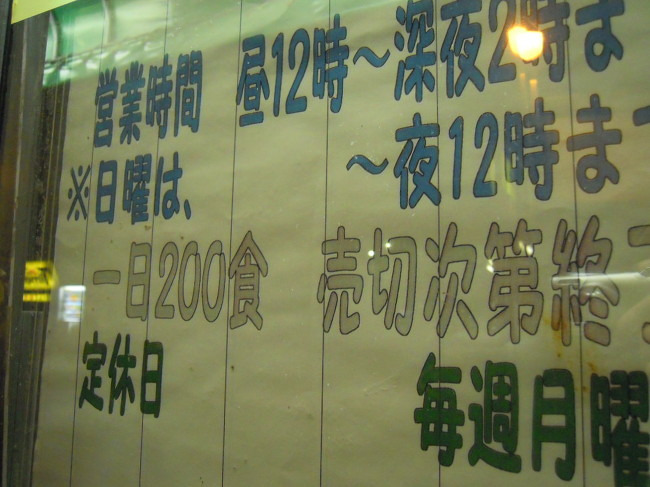 営業時間 昼12時～深夜2時ま
※日曜は、 ～夜12時まで
一日200食 売切次第終了
定休日 毎週月曜